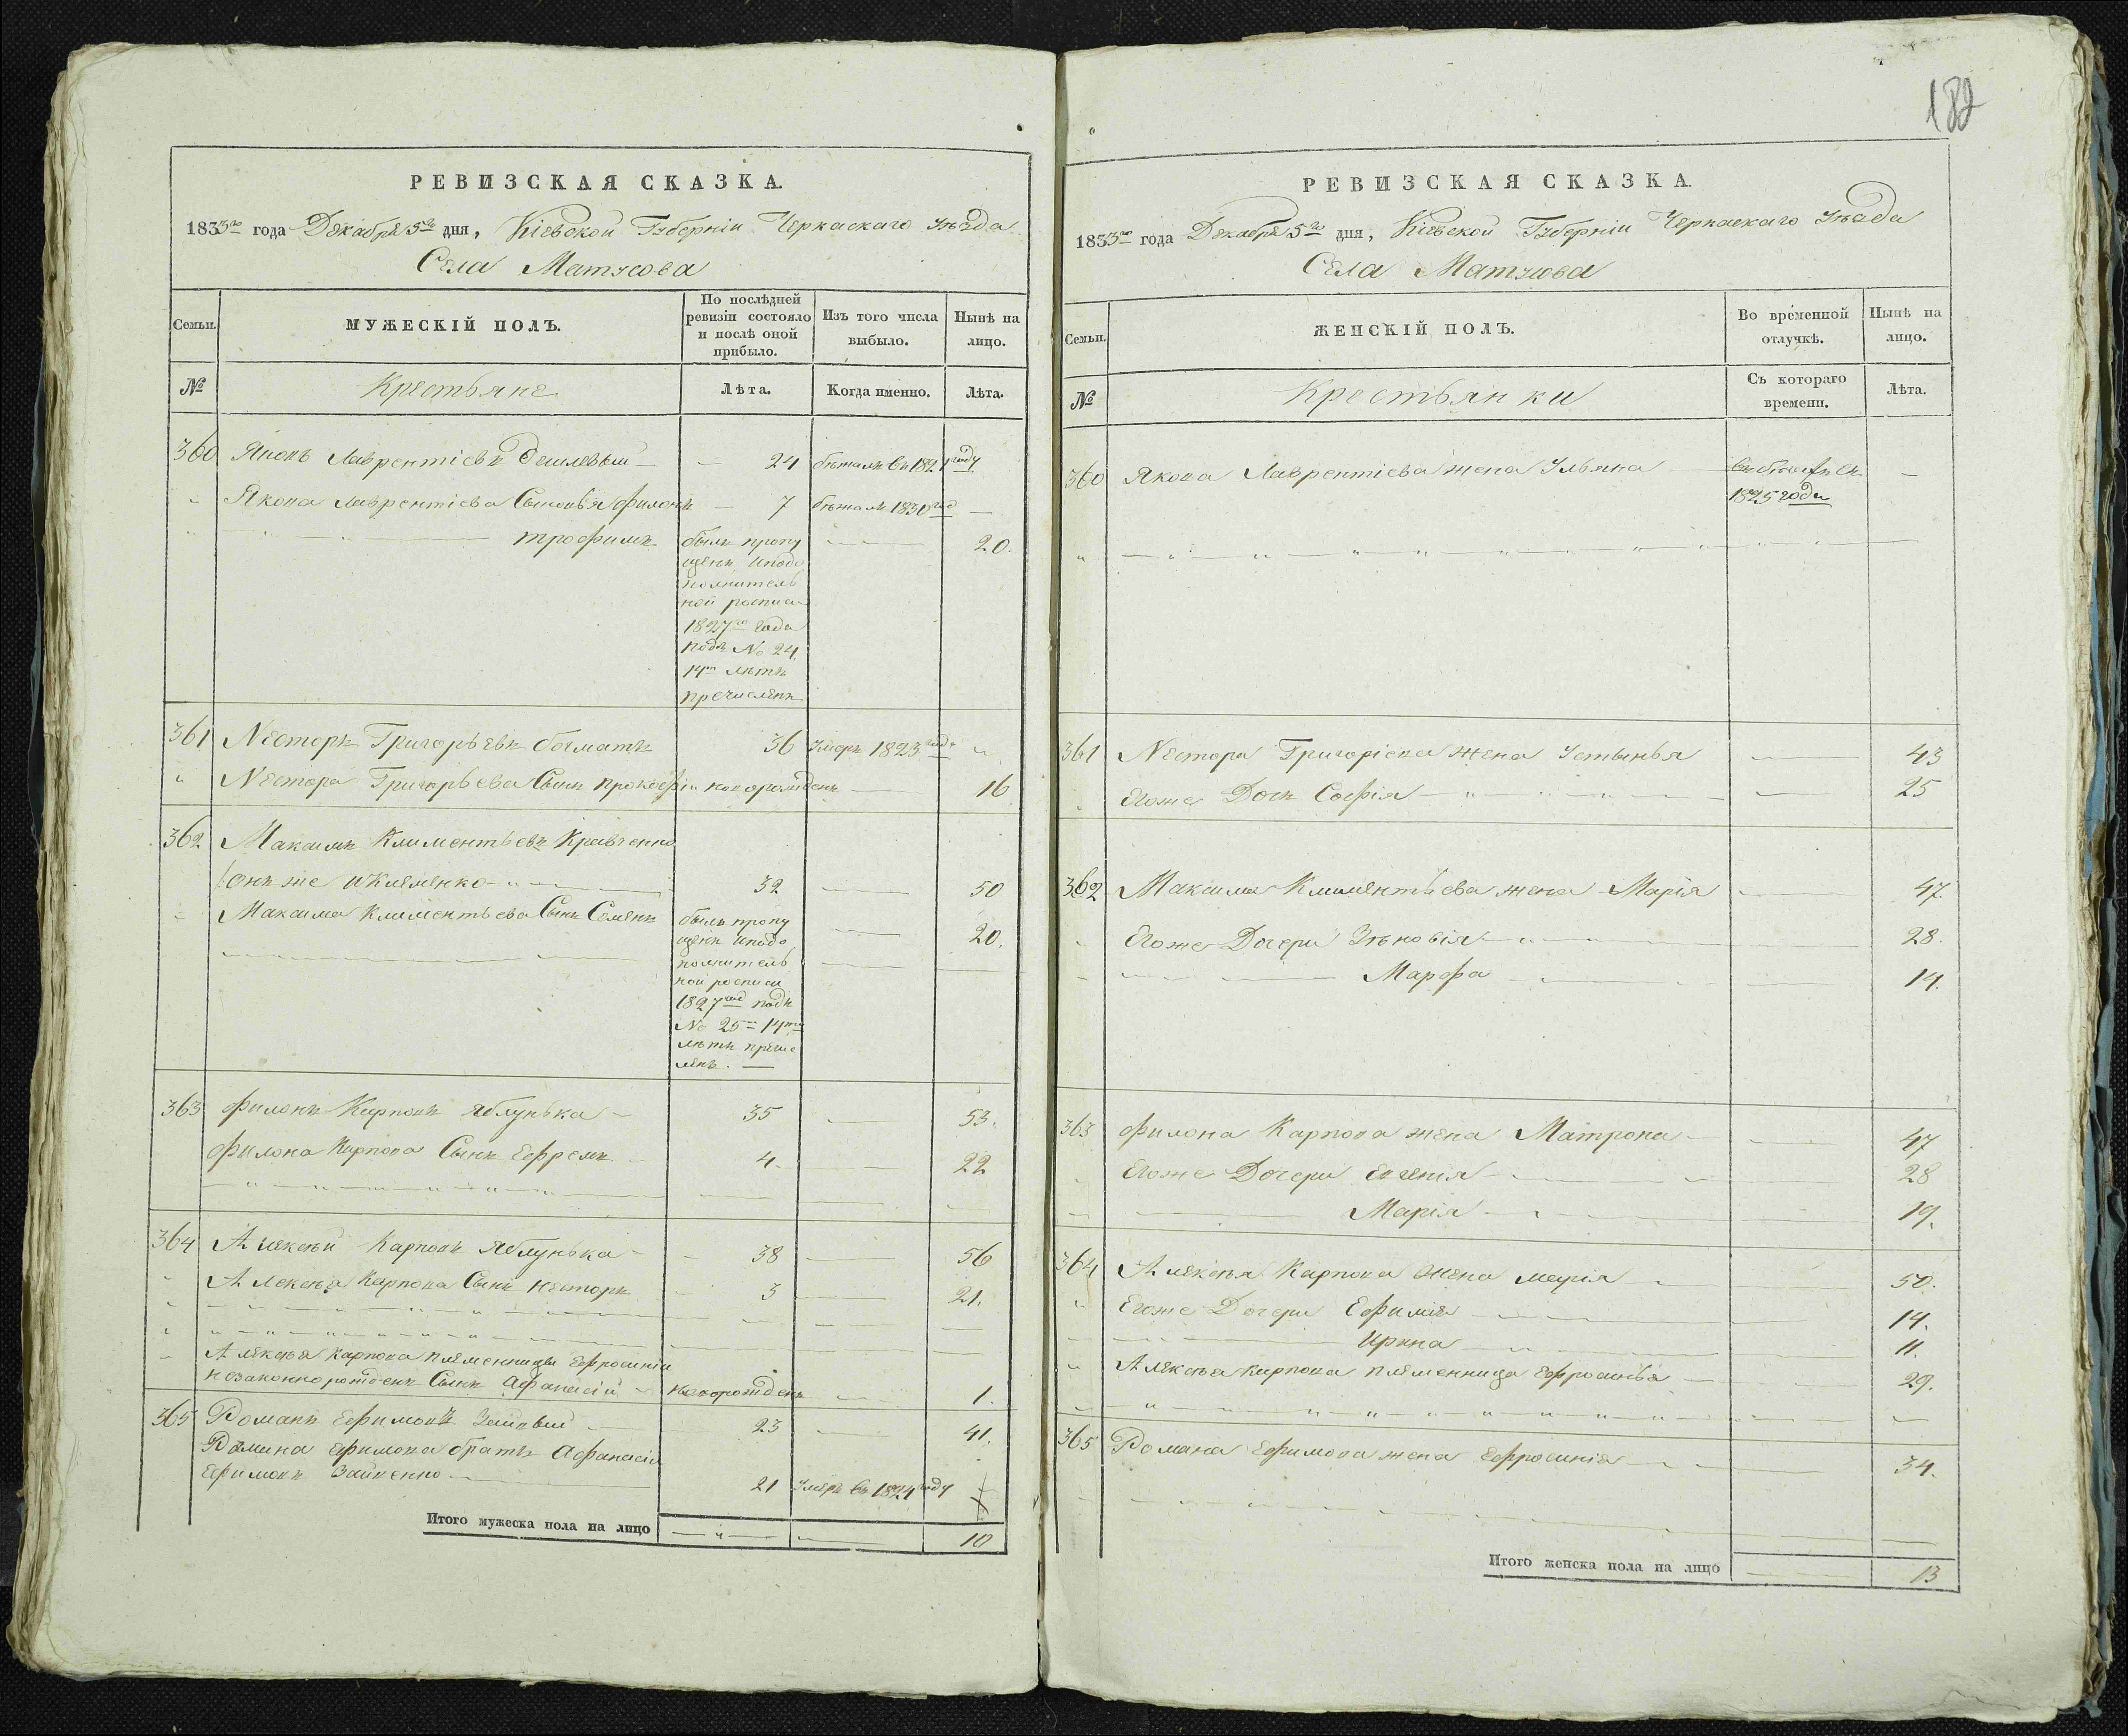 182
РЕВИЗСКАЯ СКАЗКА.
1833го года Декабря 5го дня, Кіевской Губерніи Черкаскаго уѣзда
Села Матусова
Семьи.
МУЖЕСКІЙ ПОЛЪ.
По послѣдней
ревизіи состояло
и послѣ оной
прибыло.
Изъ того числа
выбыло.
Нынѣ на
лицо.
№
Крестьяне
Лѣта.
Когда именно.
Лѣта.
360 Яковъ Лаврентіевъ — 24 бѣжалъ въ 1821 году
„ Якова Лаврентіева Сыновья Филонъ — 7 бѣжалъ 1830 год —
„ — Трофимъ былъ пропу — 20.
щенъ иподо
полнитель
ной росписи
1827го года
подъ № 24
14ти лѣтъ
пречисленъ
361 Несторъ Григорьевъ 36 умеръ 1823 года „
„ Нестора Григорьева Сынъ Прокофій новорожденъ — 16
362 Максимъ Климентьевъ Кравченко
онъ же и Клименко — 32 — 50
„ Максима Климентьева Сынъ Семенъ былъ пропу — 20.
щенъ иподо
полнитель
ной росписи
1827 год подъ
№ 25 14ти
лѣтъ пречис
ленъ. —
363 Филонъ Карповъ Яблунька — 35 — 53.
Филона Карпова Сынъ Ефремъ — 4 — 22
364 Алексѣй Карповъ Яблунька — 38 — 56
„ Алексѣя Карпова Сынъ Несторъ — 3 — 21.
„ Алексѣя Карпова племенницы Ефросиніи
незаконнорожденъ Сынъ Афанасій — новорожденъ — 1.
365 Романъ Ефимовъ — 23 — 41.
Романа Ефимова братъ Афанасій
Ефимовъ Зайченко — 21 умеръ въ 1824 году
Итого мужеска пола на лицо — „ — 10
РЕВИЗСКАЯ СКАЗКА.
1833го года Декабря 5го дня, Кіевской Губерніи Черкаскаго уѣзда
Села Матусова
Семьи.
ЖЕНСКІЙ ПОЛЪ.
Во временной
отлучкѣ.
Нынѣ на
лицо.
№
Крестьянки
Съ котораго
времени.
Лѣта.
360 Якова Лаврентіева жена Ульяна —
1825 года
361 Нестора Григоріева жена Устинья — 43
„ Егоже Дочь Софія — 25
362 Максима Климентьева жена Марія — 47.
„ Егоже Дочери Зѣновія — 28.
— Марфа — 14.
363 Филона Карпова жена Матрона — 47
„ Егоже Дочери Евгенія — 28
— Марія — 19.
364 Алексѣя Карпова жена Марія — 50.
„ Егоже Дочери Ефимія — 14.
— Ирина — 11.
„ Алексѣя Карпова племенница Ефросинья — 29.
365 Романа Ефимова жена Ефросинія — 34.
Итого женска пола на лицо — 13